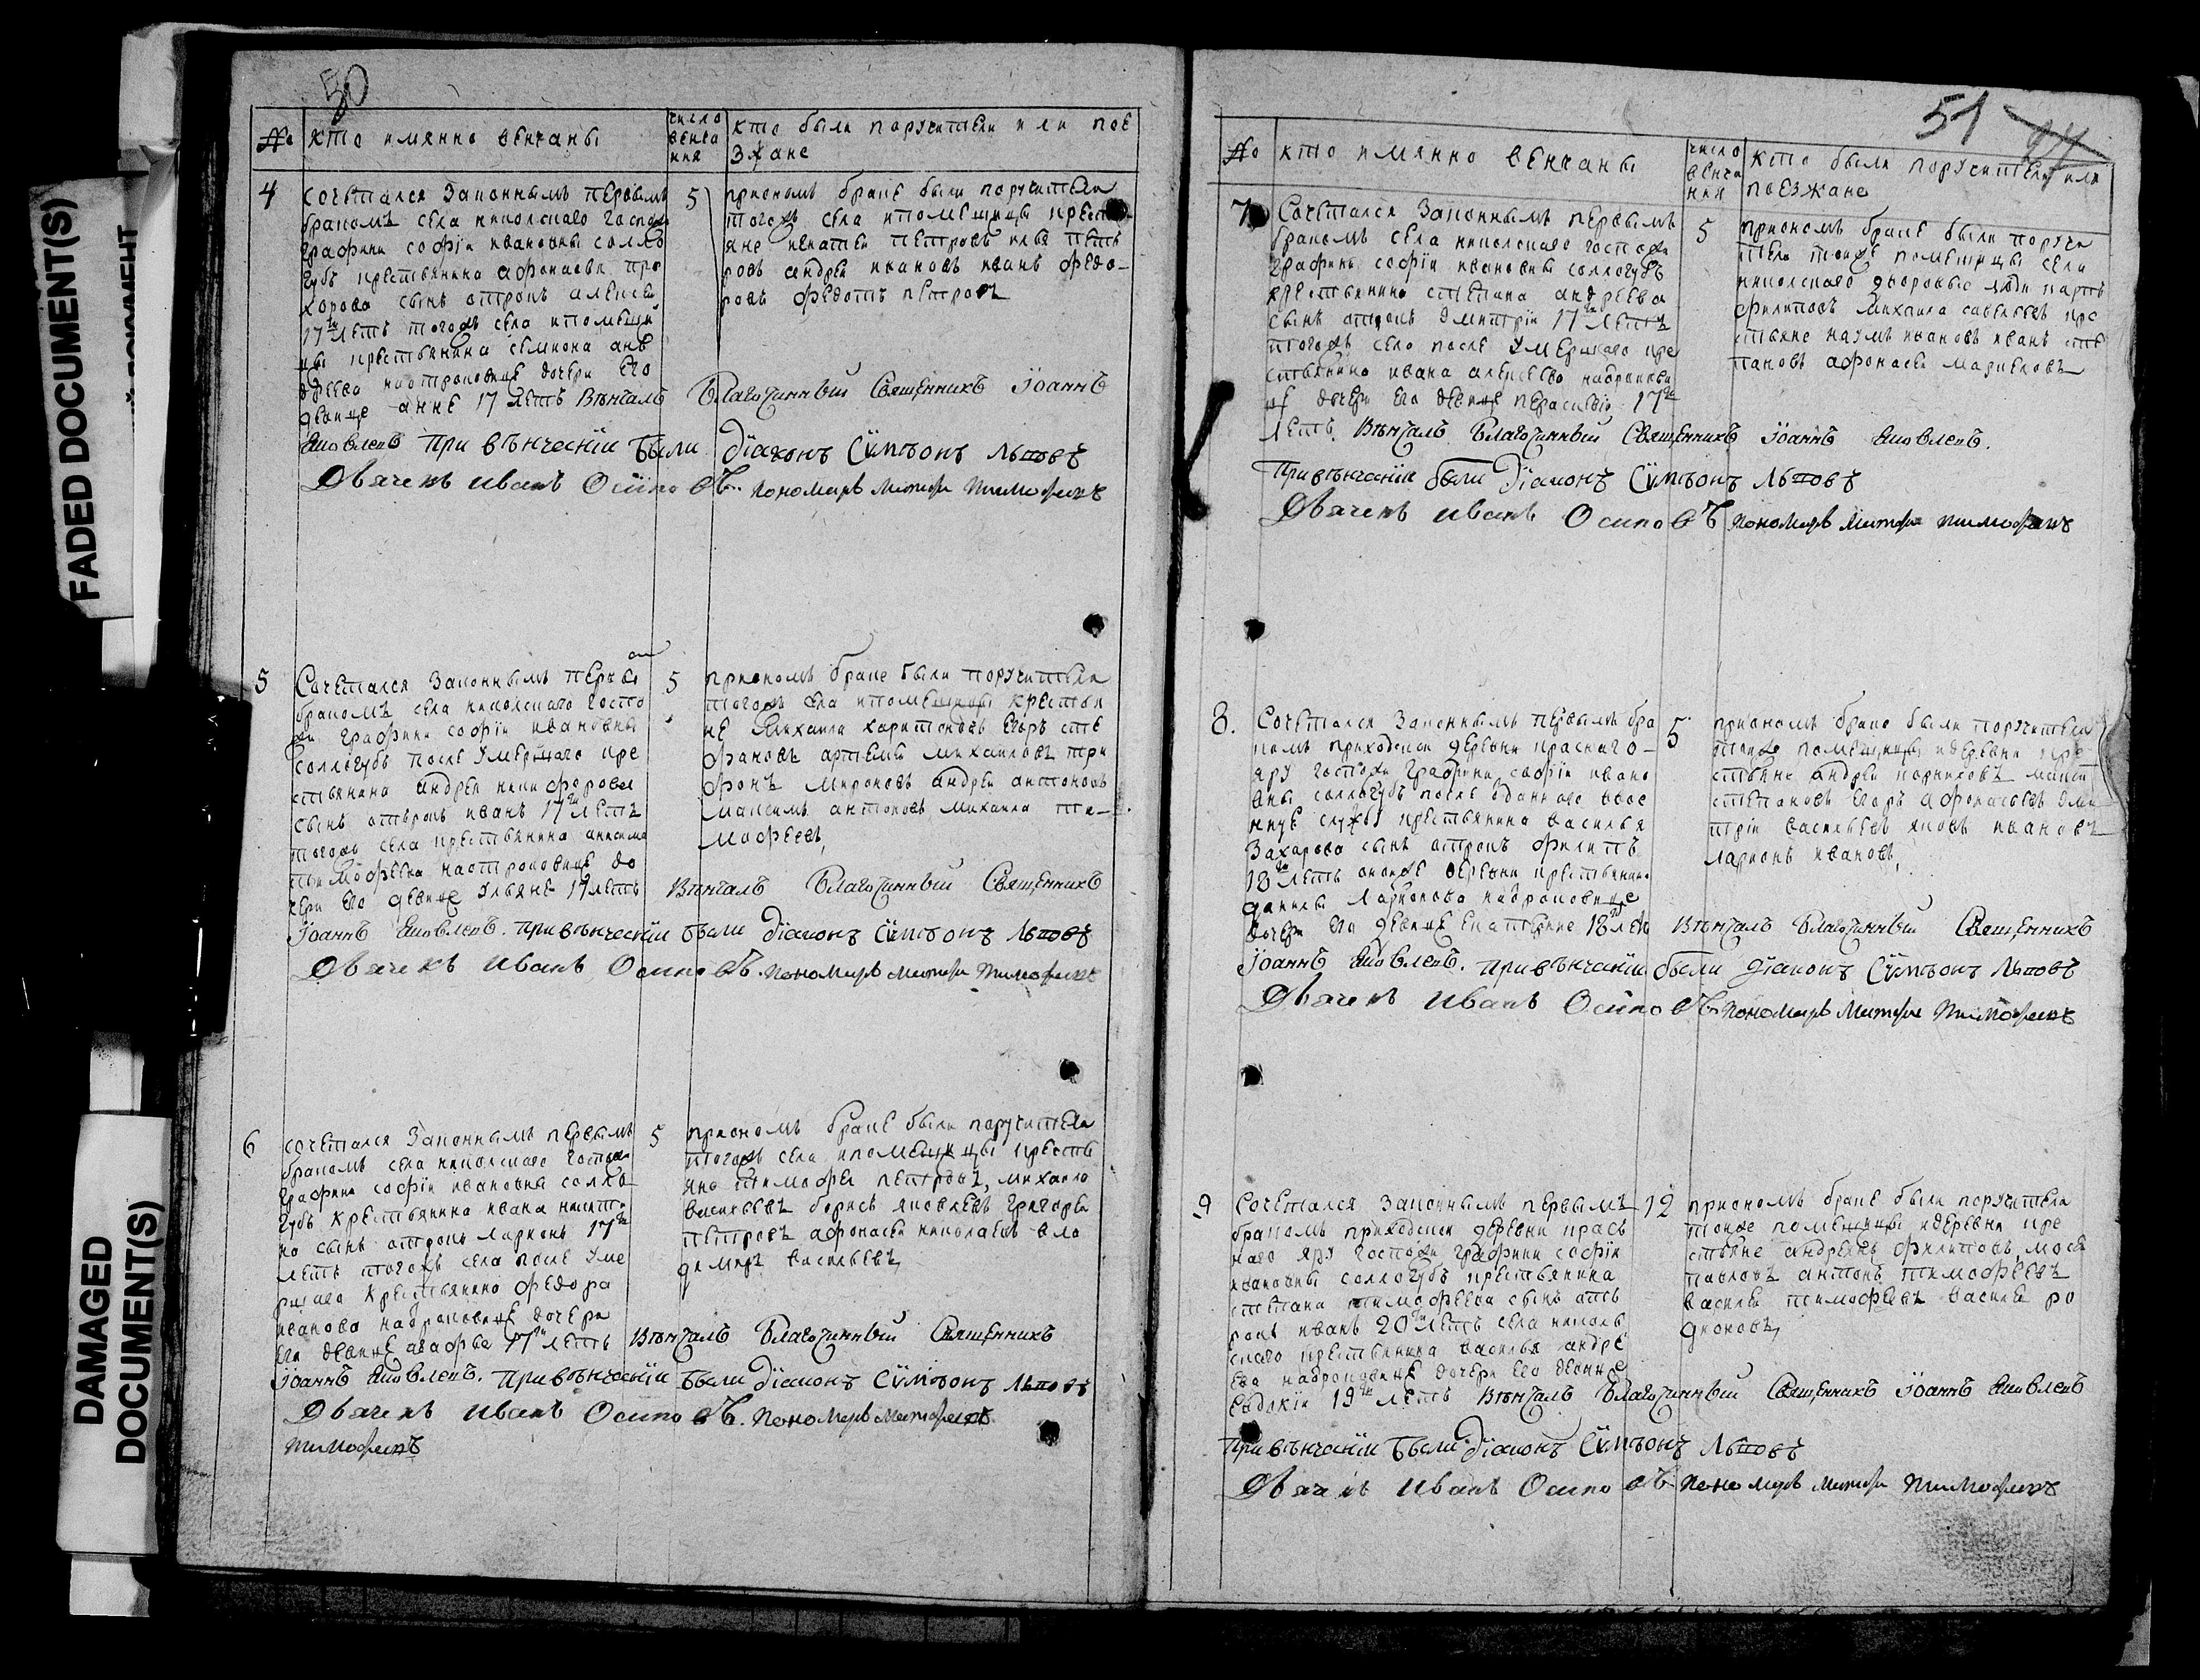 FADED DOCUMENT(S)
DAMAGED
DOCUMENT(S)
50
№ кто имянно венчаны
число венча ния
кто были поручители или пое
зжане
4
Сочетался законнымъ первымъ
бракомъ села николскаго госпожи
графини софiи ивановны солло
губъ крестьянина афонасья про
хорова сынъ отрокъ алексей
17ти летъ тогожъ села и помещи
цы крестьянина семиона анъ
дреева на отроковице дочери его
девице анне 17 летъ Вѣнчалъ Благочинный Священникъ Iоаннъ
Яковлевъ При вѣнчанiи были Дiаконъ Сѵмѣонъ Львовъ
Дьячекъ Иванъ Осиповъ. Пономарь Матфей Тимофеевъ
5
приономъ браке были поручители
тогожъ села и помещицы кресть
яне игнатей петровъ илья пет
ровъ андрей ивановъ иванъ федо-
ровъ федотъ петровъ
5
Сочетался законнымъ первы
бракомъ села николскаго госпо
жи графини софiи ивановны
соллогубъ после умершаго кре
стьянина андрея никифорова
сынъ отрокъ иванъ 17ти летъ
тогожъ села крестьянина анисима
тимофеева на отроковице до
чери его девице ульяне 17 летъ Вѣнчалъ Благочинный Священникъ
Iоаннъ Яковлевъ. При вѣнчанiи были Дiаконъ Сѵмѣонъ Львовъ
Дьячекъ Иванъ Осиповъ. Пономарь Матфей Тимофеевъ
5
приономъ браке были поручители
тогожъ села и помещицы крестья
не михаила харитоновъ егоръ сте
фановъ артемей михаиловъ три
фонъ мироновъ андрей антоновъ
максимъ антоновъ михаила ти-
мофеевъ
6
сочетался законнымъ первымъ
бракомъ села николскаго госпожи
графини софiи ивановны солло
губъ крестьянина ивана никити
на сынъ отрокъ ларионъ 17ти
летъ тогожъ села после уме
ршаго крестьянина федора
иванова на отроковице дочери
его девице агафье 17ти летъ Вѣнчалъ Благочинный Священникъ
Iоаннъ Яковлевъ. При вѣнчанiи были Дiаконъ Сѵмѣонъ Львовъ
Дьячекъ Иванъ Осиповъ. Пономарь Матфей
Тимофеевъ
5
приономъ браке были поручители
тогожъ села и помещицы кресть
яне тимофей петровъ, михайло
васильевъ борисъ яковлевъ григорей
петровъ афонасей николаевъ вла
димиръ васильевъ
51
№ кто имянно венчаны
число венча ния
кто были поручители или
поезжане
7
Сочетался законнымъ первымъ
бракомъ села николскаго госпожи
графини софiи ивановны соллогубъ
крестьянина степана андреева
сынъ отрокъ дмитрiй 17ти летъ
тогожъ села после умершаго кре
стьянина ивана алексеева на отрокови
це дочери его девице парасковiи 17ти
летъ. Вѣнчалъ Благочинный Священникъ Iоаннъ Яковлевъ.
При вѣнчанiи были Дiаконъ Сѵмѣонъ Львовъ
Дьячекъ Иванъ Осиповъ Пономарь Матфей Тимофеевъ
5
приономъ браке были поручи
тели тойже помещицы села
николскаго дворовые люди карпъ
филиповъ михаила савельевъ кре
стьяне наумъ ивановъ иванъ сте
пановъ афонасей маркеловъ
8.
Сочетался законнымъ первымъ бра
комъ приходской деревни краснаго-
яру госпожи графини софiи ивано
вны соллогубъ после отданнаго ввое
нную службу крестьянина василья
захарова сынъ отрокъ филипъ
18ти летъ онойже деревни крестьянина
данилы ларионова на отроковице
дочери его девице екатерине 18 летъ Вѣнчалъ Благочинный Священникъ
Iоаннъ Яковлевъ. При вѣнчанiи были Дiаконъ Сѵмѣонъ Львовъ
Дьячекъ Иванъ Осиповъ Пономарь Матфей Тимофеевъ
5
приономъ браке были поручители
тойже помещицы идеревни кре
стьяне андрей
степановъ егоръ афонасьевъ дми
трiй васильевъ яковъ ивановъ
ларионъ ивановъ
9
Сочетался законнымъ первымъ
бракомъ приходской деревни крась
наго яру госпожи графини софiи
ивановны соллогубъ крестьянина
степана тимофеева сынъ отъ
рокъ иванъ 20ти летъ села николь
скаго крестьянина василья андре
ева на отроковице дочери его девице
евдокiи 19ти летъ Вѣнчалъ Благочинный Священникъ Iоаннъ Яковлевъ
При вѣнчанiи были Дiаконъ Сѵмѣонъ Львовъ
Дьячекъ Иванъ Осиповъ Пономарь Матфей Тимофеевъ
12
приономъ браке были поручители
тойже помещицы идеревни кре
стьяне андреянъ филиповъ, мосей
павловъ антонъ тимофеевъ
василей тимофеевъ василей ро
дионовъ